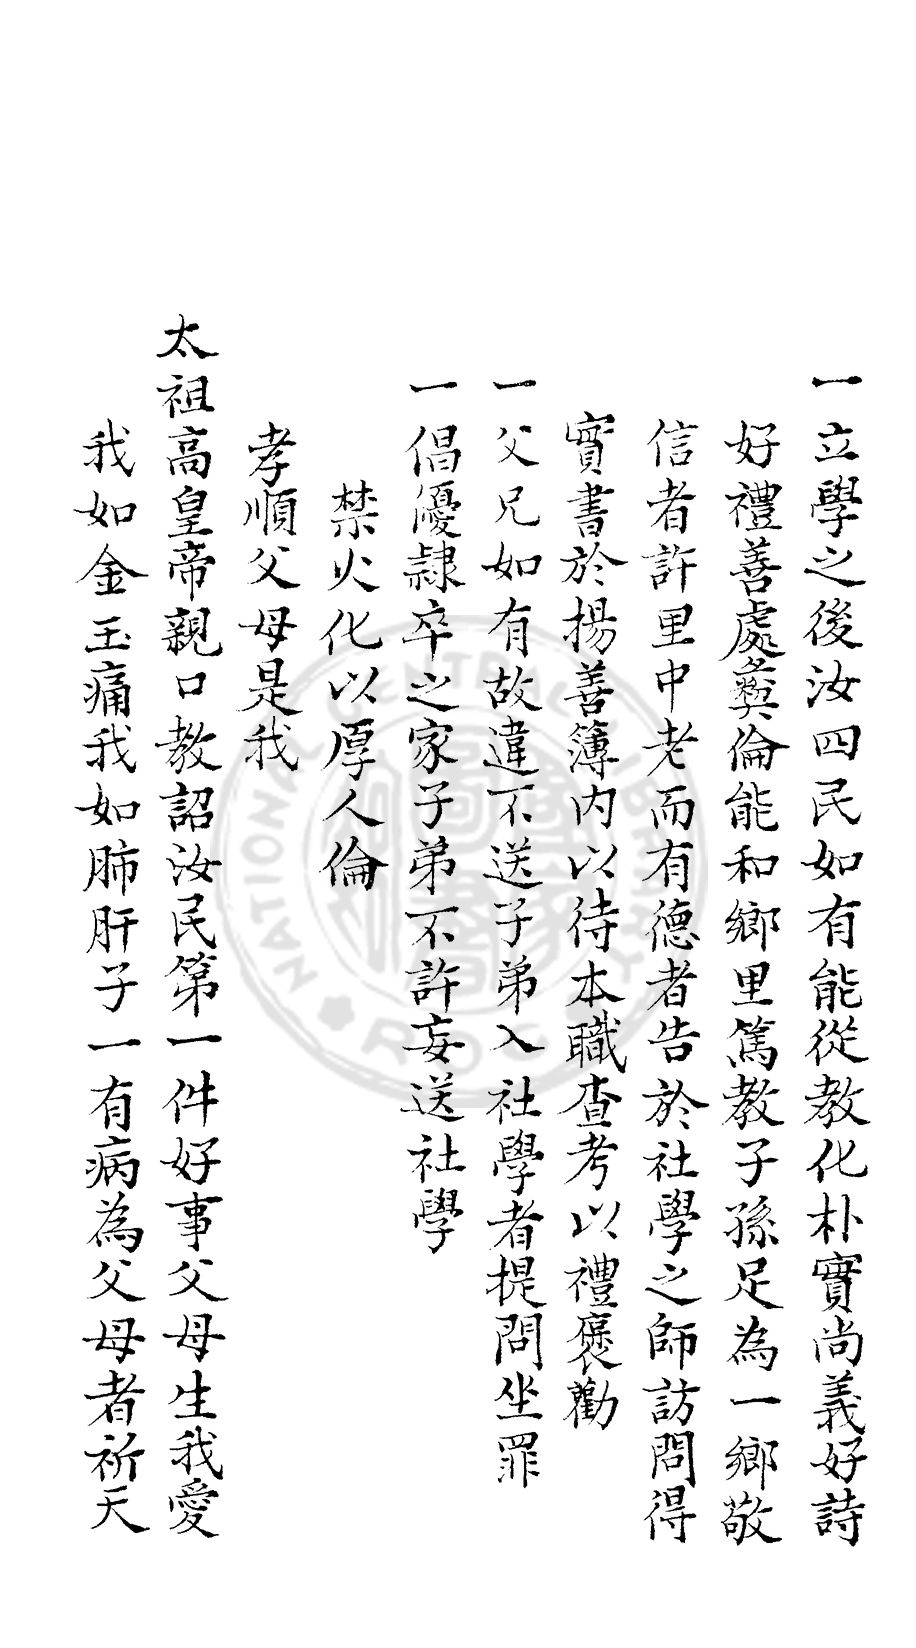 一立學之後汝四民如有能從教化朴實尚義好詩
好禮善處彝倫能和鄉里篤教子孫足為一鄉敬
信者許里中老而有德者告於社學之師訪問得
實書於揚善簿内以待本職查考以禮褒勸
一父兄如有故違不送子弟入社學者提問坐罪
一倡優隷卒之家子弟不許妄送社學
禁火化以厚人倫
孝順父母是我
太祖高皇帝親口教詔汝民第一件好事父母生我愛
我如金玉痛我如肺肝子一有病為父母者祈天
NATIONAL CENTRAL LIBRARY
R.O.C.